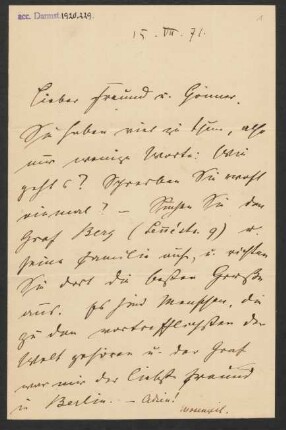 acc. Darmst. 1920.229.
1
15. VII. 71.
Lieber Freund u. Gönner.
Sie haben viel zu thun, also
nur wenige Worte: Wie
geht's? Schreiben Sie wohl
einmal? – Suchen Sie den
Graf Berg (9) u.
seine Familie auf, u. richten
Sie dort die besten Grüße
aus. Es sind Menschen, die
zu den vortrefflichsten der
Welt gehören u. der Graf
war mir der liebste Freund
in Berlin. – Adieu!